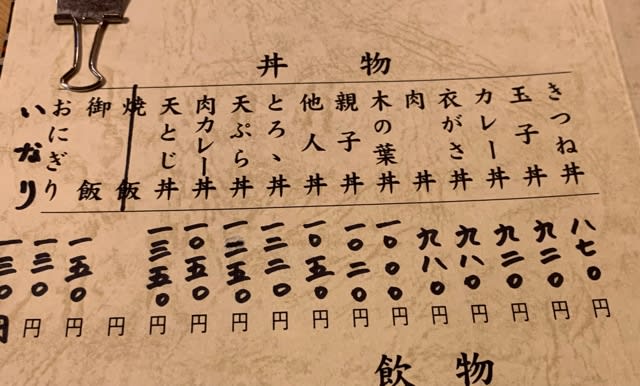 丼物
きつね丼 八七〇円
玉子丼 九二〇円
カレー丼 九二〇円
衣がさ丼 九八〇円
肉丼 九八〇円
木の葉丼 一〇〇〇円
親子丼 一〇二〇円
他人丼 一〇五〇円
とろゝ丼 一二二〇円
天ぷら丼 一二五〇円
肉カレー丼 一〇五〇円
天とじ丼 一三五〇円
焼飯 円
御飯 一五〇円
おにぎり 一三〇円
いなり 一三〇円
飲物